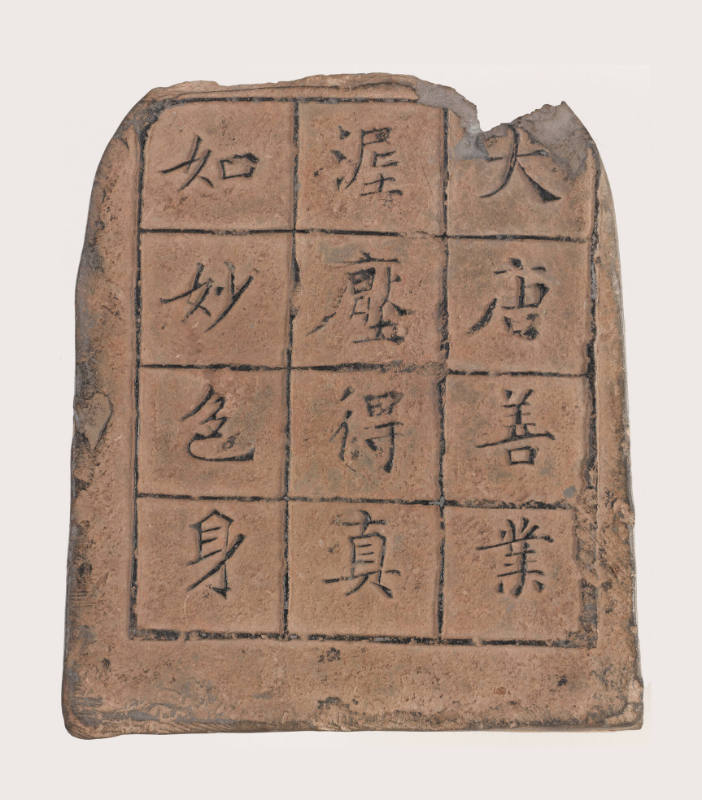 大唐善業
渥壓得真
如妙色身